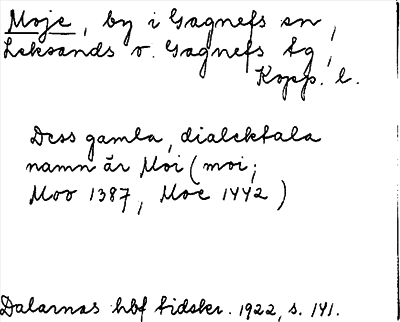 Moje, by i Gagnefs sn,
Leksands o. Gagnefs tg,
Kopp. l.
Dess gamla, dialektala
namn är Moi (moi;
Moo 1387, Moe 1442)
Dalarnas hbf tidskr. 1922, s. 141.